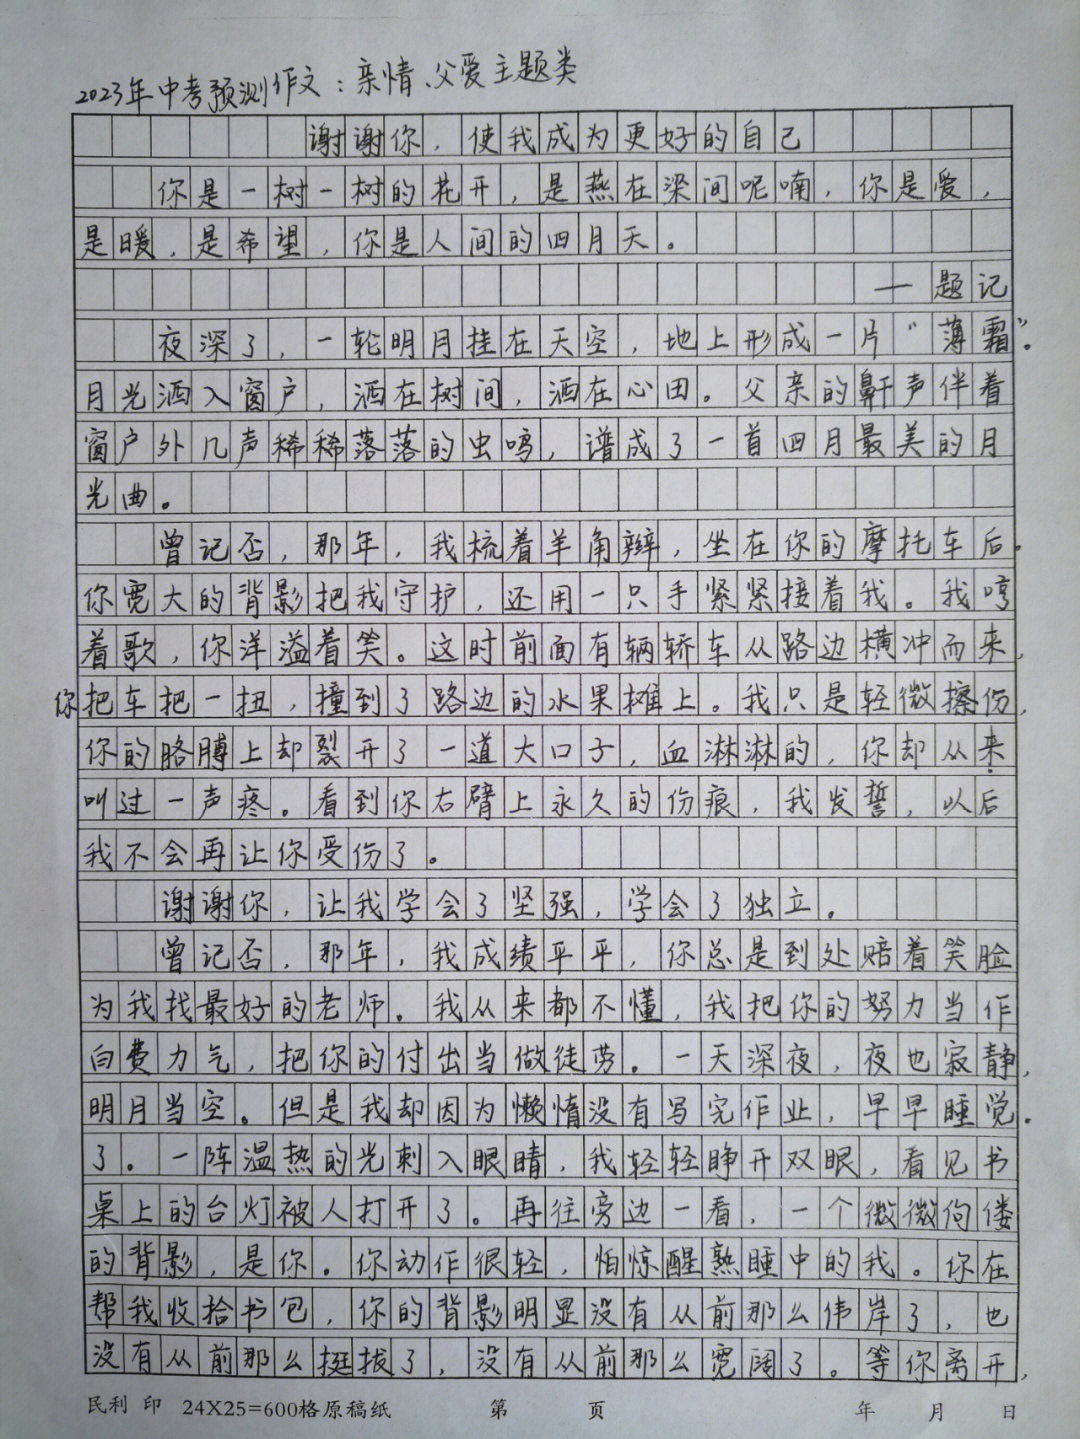 2023年中考预测作文：亲情、父爱主题类
谢谢你，使我成为更好的自己
你是一树一树的花开，是燕在梁间呢喃，你是爱，
是暖，是希望，你是人间的四月天。
——题记
夜深了，一轮明月挂在天空，地上形成一片“薄霜”。
月光洒入窗户，洒在树间，洒在心田。父亲的鼾声伴着
窗户外几声稀稀落落的虫鸣，谱成了一首四月最美的月
光曲。
曾记否，那年，我梳着羊角辫，坐在你的摩托车后。
你宽大的背影把我守护，还用一只手紧紧接着我。我哼
着歌，你洋溢着笑。这时前面有辆轿车从路边横冲而来，
你把车把一扭，撞到了路边的水果摊上。我只是轻微擦伤，
你的胳膊上却裂开了一道大口子，血淋淋的，你却从来
叫过一声疼。看到你右臂上永久的伤痕，我发誓，以后
我不会再让你受伤了。
谢谢你，让我学会了坚强，学会了独立。
曾记否，那年，我成绩平平，你总是到处赔着笑脸
为我找最好的老师。我从来都不懂，我把你的努力当作
白费力气，把你的付出当做徒劳。一天深夜，夜也寂静，
明月当空。但是我却因为懒惰没有写完作业，早早睡觉。
了。一阵温热的光刺入眼睛，我轻轻睁开双眼，看见书
桌上的台灯被人打开了。再往旁边一看，一个微微佝偻
的背影，是你。你动作很轻，怕惊醒熟睡中的我。你在
帮我收拾书包，你的背影明显没有从前那么伟岸了，也
没有从前那么挺拔了，没有从前那么宽阔了。等你离开，
民利 印 24X25=600格原稿纸 第 页 年 月 日